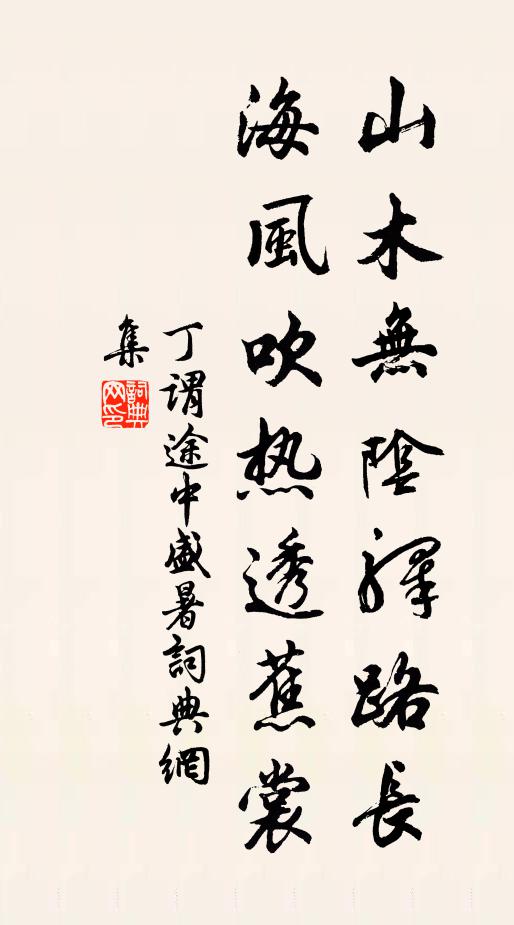 山木無陰驛路長
海風吹热透蕉裳
丁謂途中盛暑詞典網
集
詞典网印